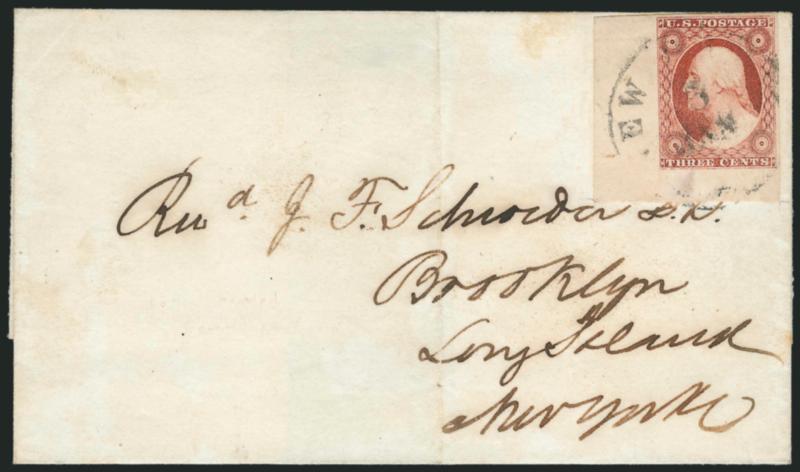 U.S. POSTAGE
EW
5
JAN
THREE CENTS
Revd J. F. Schroeder D.D.
Brooklyn
Long Island
New York